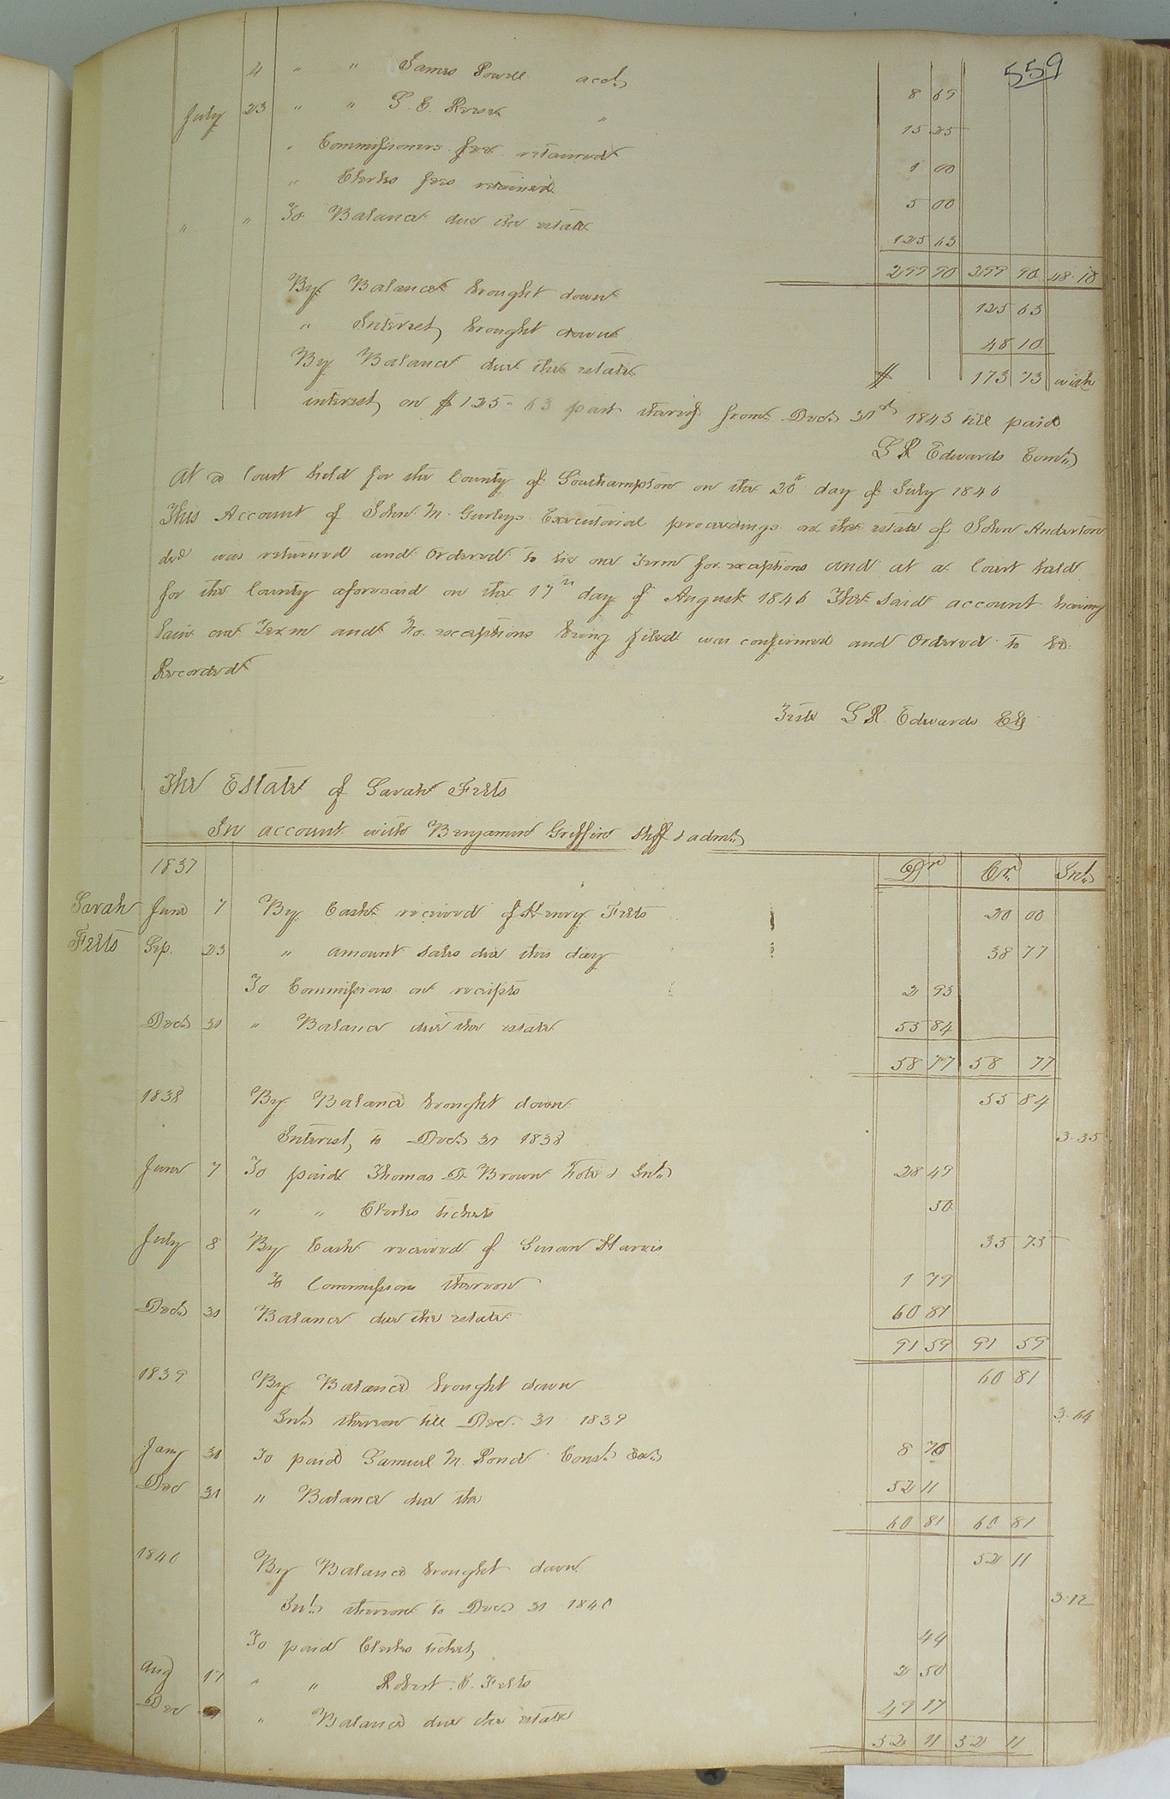 559
4 " " James Powell acct 8 69
July 23 " " G. E. Rosser " 15 25
" Commissioners fees retained 1 00
" Clerks fees retained 5 00
" " To Balance due the estate 125 63
299 90 299 90 48.10
By Balance brought down 125 63
" Interest brought down 48 10
By Balance due the estate $ 173 73 with
interest on $125.63 part thereof from Decr 31st 1845 till paid
L R Edwards Comr
At a Court held for the County of Southampton on the 20th day of July 1846
This Account of John M. Gurleys Executorial proceedings on the estate of John Anderton
decd was returned and Ordered to lie one Term for exceptions and at a Court held
for the County aforesaid on the 17th day of August 1846 The said account having
lain one Term and No exceptions being filed was confirmed and Ordered to be
Recorded
Teste L R Edwards Clk
The Estate of Sarah Felts
In account with Benjamin Griffin Shff & admr
1837 Dr Cr. Int.
Sarah Felts
June 7 By Cash received of Henry Felts 20 00
Sep. 23 " amount sales due this day 38 77
To Commissions on receipts 2 93
Decr 31 " Balance due the estate 55 84
58 77 58 77
1838 By Balance brought down 55 84
Interest to Decr 31 1838 3.35
June 7 To paid Thomas D. Brown Note & Int. 28 49
" " Clerks tickets 50
July 8 By Cash received of Susan Harris 35 75
To Commissions thereon 1 79
Decr 31 Balance due the estate 60 81
91 59 91 59
1839 By Balance brought down 60 81
Int. thereon till Dec. 31 1839 3.64
Jany 31 To paid Samuel M. Pond Const. 8 70
Dec 31 " Balance due the 52 11
60 81 60 81
1840 By Balance brought down 52 11
Int. thereon to Decr 31 1840 3.12
To paid Clerks ticket 44
Aug 17 " " Robert Felts 2 50
Dec " Balance due the estate 49 17
52 11 52 11